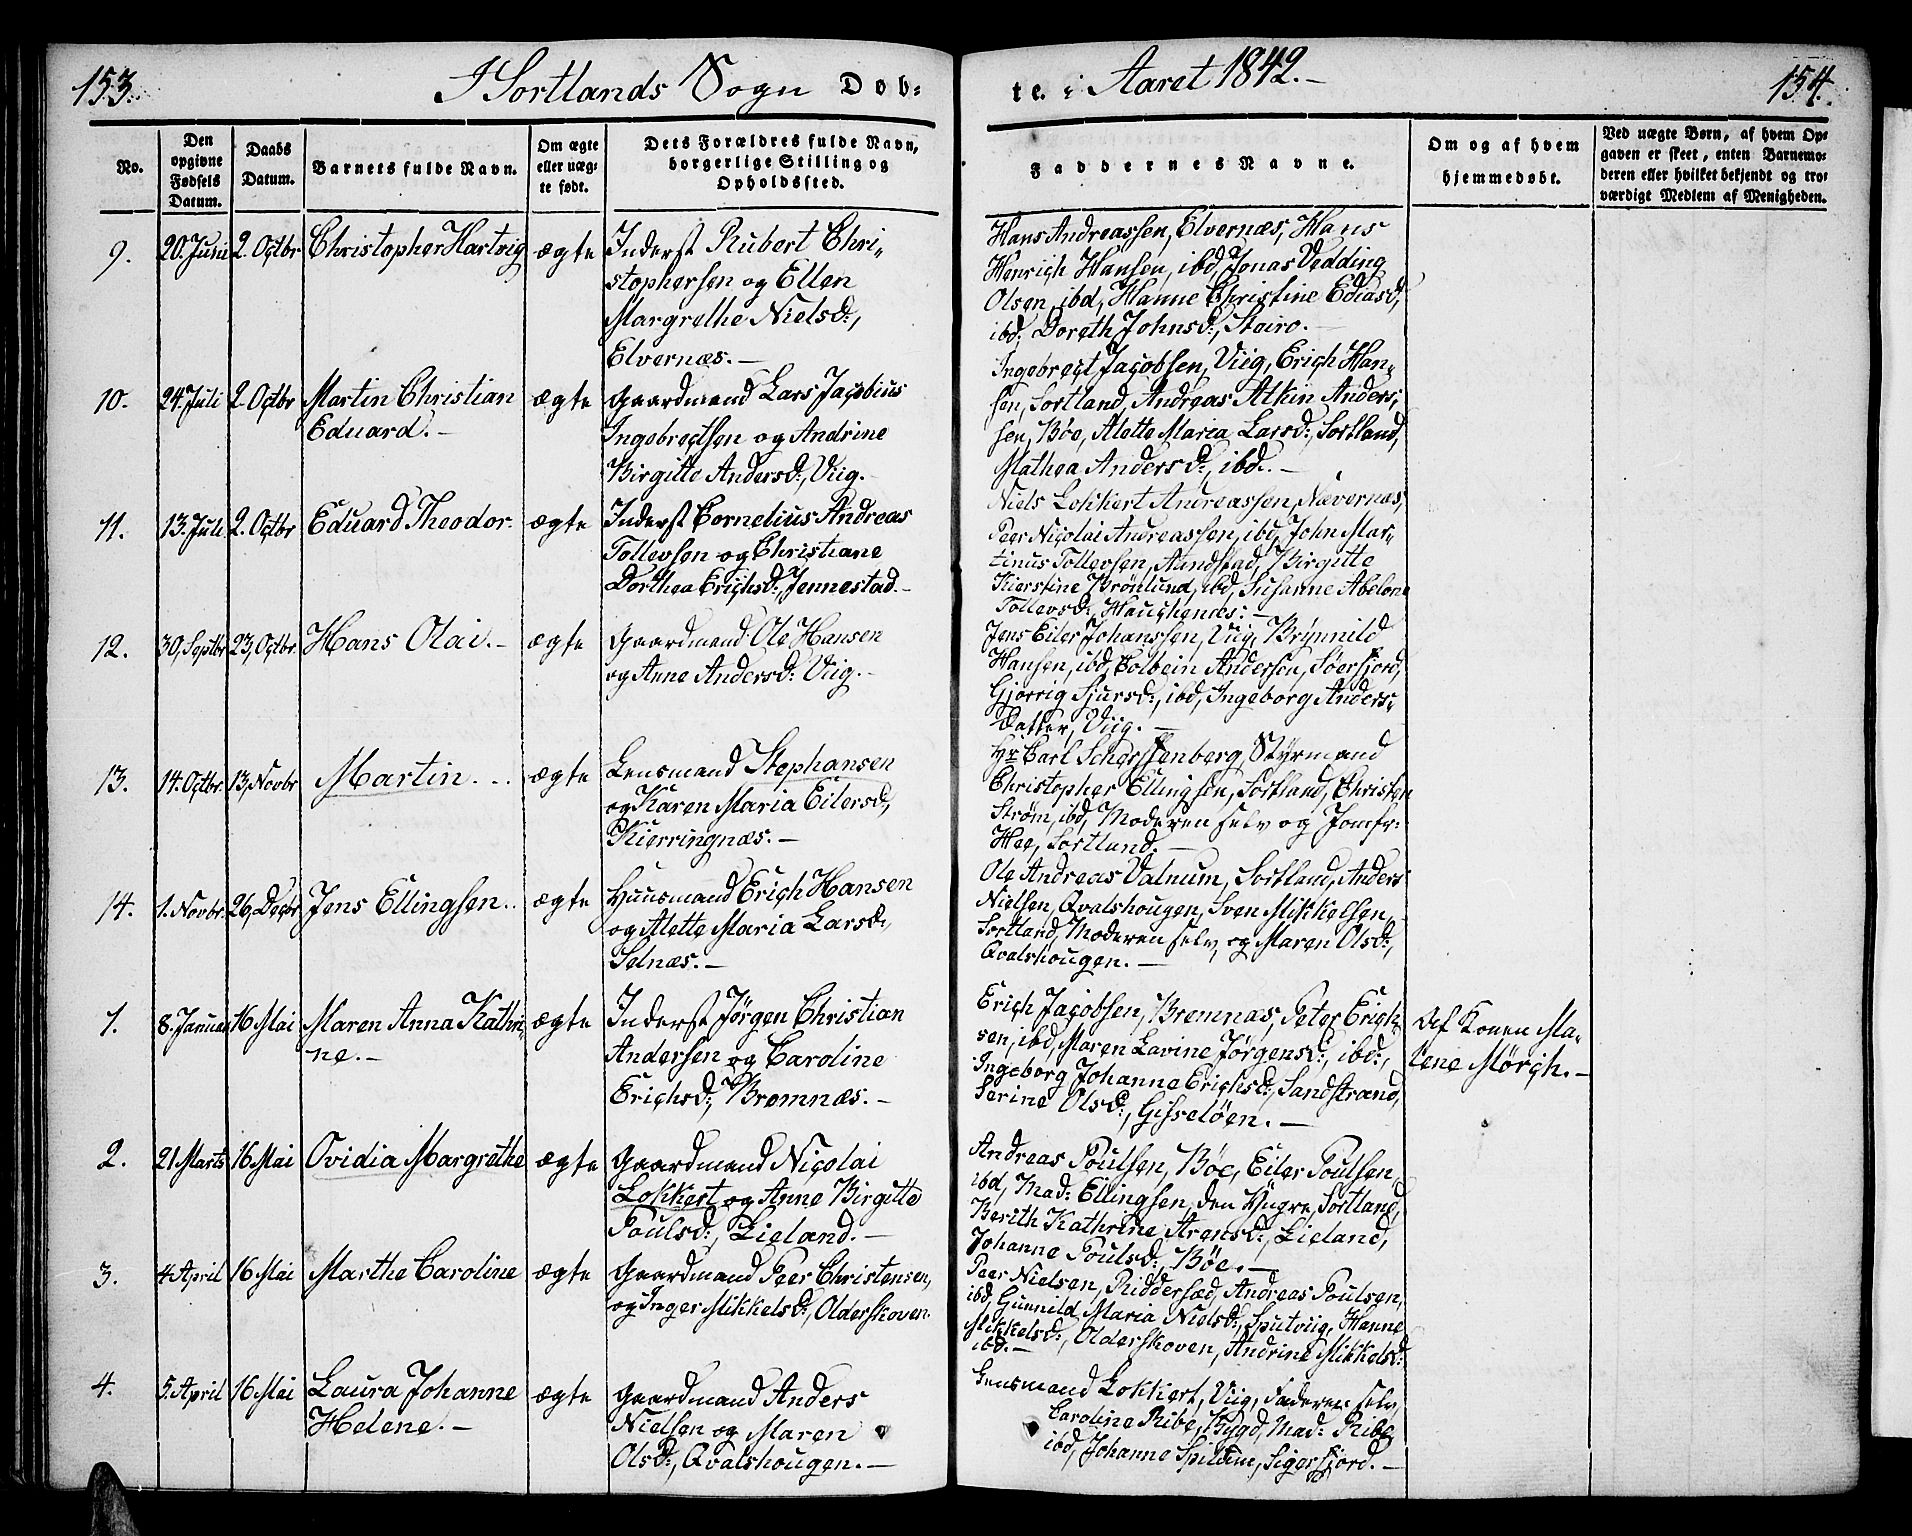 153.
I Sortlands Sogn Døb-
te i Aaret 1842.-
154.
No.
Den opgivne Fødsels Datum.
Daabs Datum.
Barnets fulde Navn.
Om ægte eller uæg-te født.
Dets Forældres fulde Navn, borgerlige Stilling og Opholdssted.
Faddernes Navne.
Om og af hvem hjemmedøbt.
Ved uægte Børn, af hvem Op-
gaven er skeet, enten Barnemo-
deren eller hvilket bekjendt og tro-
værdigt Medlem af Menigheden.
9. 20. Juni 2. Octbr Christopher Hartvig ægte Inderst Rubert Chri-
stophersen og Ellen
Margrethe Nielsd:,
Elvernæs.-
Hans Andreassen, Elvernæs, Hans
Henrich Hansen, ibd, Jonas Vedding
Olsen, ibd, Hanne Christine Ediasd,
ibd, Doreth Johnsd:, Stoiro.-
10. 24. Juli 2. Octbr Martin Christian ægte Gaardmand Lars Jacobius
Eduard.-
Ingebrectsen og Andrine
Birgitte Andersd:, Viig.-
Ingebrect Jacobsen, Viig, Erich Han-
sen, Sortland, Andreas Atkin Anders-
sen, Böe, Alette Maria Larsd:, Sortland,
Mathea Andersd:, ibd.-
11. 13. Juli 2. Octbr Eduard Theodor. ægte Inderst Cornelius Andreas
Tollevsen og Christiane
Dorthea Erichsd:, Jennestad.-
Niels Lokkert Andreassen, Nævernæs,
Peer Nicolai Andreassen, ibd, John Mar-
tinus Tollevsen, Aundstad, Birgitte
Kierstine Brönlund, ibd, Susanne Abelone
Tollevsd:, Hauchenæs.-
12. 30, Septbr 23, Octbr. Hans Olai.- ægte Gaardmand Ole Hansen
og Anne Andersd: Viig.-
Jens Eiler Johanssen, Viig, Brynnild
Hansen, ibd, Colbein Andersen, Söerfjord,
Gjorrig Sjursd:, ibd, Ingeborg Anders-
datter, Viig.-
13. 14. Octbr. 13, Novbr Martin.- ægte Lensmand Stephansen
og Karen Maria Eilersd,
Kierringnæs.-
Hr Carl Styrmand
Christopher Ellingsen, Sortland, Christen
Strøm, ibd, Moderen selv og Jomfr:
Hee, Sortland.-
14. 1. Novbr. 26, Decbr Jens Ellingsen. ægte Huusmand Erich Hansen
og Alette Maria Larsd:,
Selnæs.-
Ole Andreas Valnum, Sortland, Anders
Nielsen, Qvalshougen, Sven Mikkelsen,
Sortland, Moderen selv og Maren Olsd:,
Qvalshougen.-
1. 8. Januar 16 Mai Maren Anna Kathri- ægte Inderst Jørgen Christian
ne.-
Andersen og Caroline
Erichsd:, Bremnæs.-
Erich Jacobsen, Bremnæs, Peter Erich-
sen, ibd, Maren Lavine Jørgensd:, ibd:,
Ingeborg Johanne Erichsd:, Sandstrand,
Serine Olsd:, Gisselöen.-
Af Konen Ma-
lene Mörch.-
2. 21 Marts 16 Mai Ovidia Margrethe ægte Gaardmand Nicolai
Lokkert og Anne Birgitte
Poulsd:, Lieland.-
Andreas Poulsen, Böe, Eiler Poulsen,
ibd, Mad: Ellingsen, den yngre, Sortland,
Berith Kathrine Arensd:, Lieland,
Johanne Poulsd:, Böe.-
3. 4 April 16 Mai Marthe Caroline ægte Gaardmand Peer Christensen,
og Inger Mikkelsd:, Olderskoven.
Peer Nielsen, Riddersæd, Andreas Poulsen,
ibd, Gunnild Maria Nielsd:, Sputviig, Hanne
Mikkelsd:, Olderskoven, Andrine Mikkelsd:
ibd.-
4. 5. April 16 Mai Laura Johanne ægte Gaardmand Anders
Helene.-
Nielsen og Maren
Olsd:, Qvalshougen.-
Lensmand Lokkert, Viig, Faderen selv,
Caroline Ribe, Bygd, Mad: Ribe,
ibd, Johanne Spilum, Sigerfjord.-